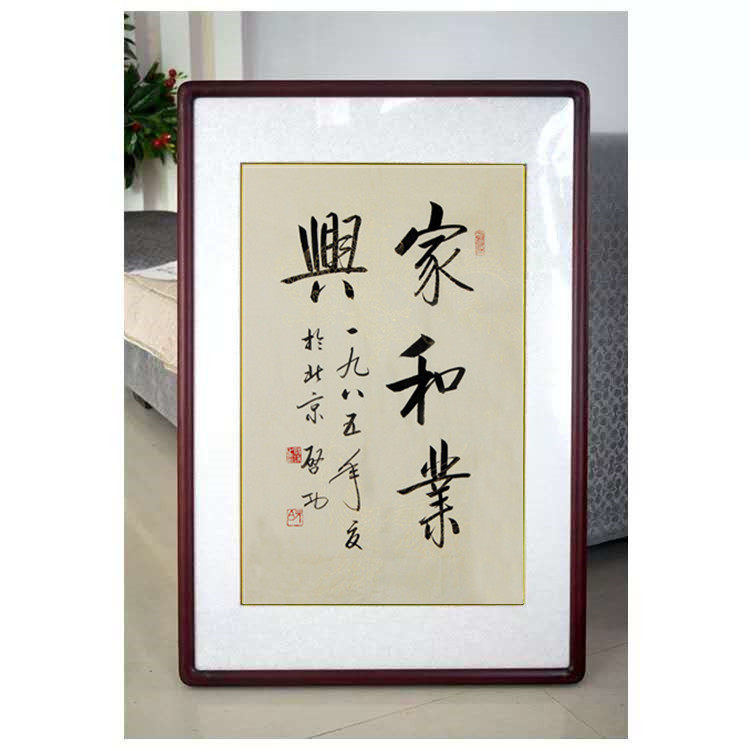 家和業
興
一九八五年夏
於北京 啓功